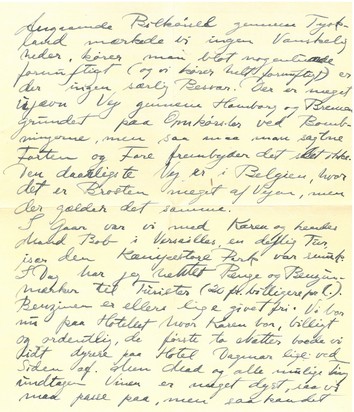 Angaaende Bilkørsel gennem Tysk-
land mærkede vi ingen Vanskelig
heder, kører man blot nogenlunde
fornuftigt (og vi kører helt fornuftigt) er
der ingen særlig Besvær. Der er meget
ujævn Vej gennem Hamborg og Bremen
grundet paa Omkørsler ved Bomb-
ningerne, men saa maa man sagtne
Farten og Fare frembyder det slet ikke.
Den daarligste Vej er i Belgien, hvor
det er Brosten meget af Vejen, men
der gælder det samme.
I Gaar var vi med Karen og hendes
Mand Bob i Versailles, en dejlig Tur,
især den Kæmpestore Park var smuk.
I Dag har jeg hentet Penge og Benzin-
mærker til Turister (20 fr. billigere pr. l.).
Benzinen er ellers lige givet fri. Vi bor
nu paa Hotellet hvor Karen bor, billigt
og ordentlig, de første to Nætter boede vi
lidt dyrere paa Hotel Dagmar lige ved
Siden af. Men Mad og alle mulige Ting
undtagen Vinen er meget dyrt, saa vi
maa passe paa, men saa kan det